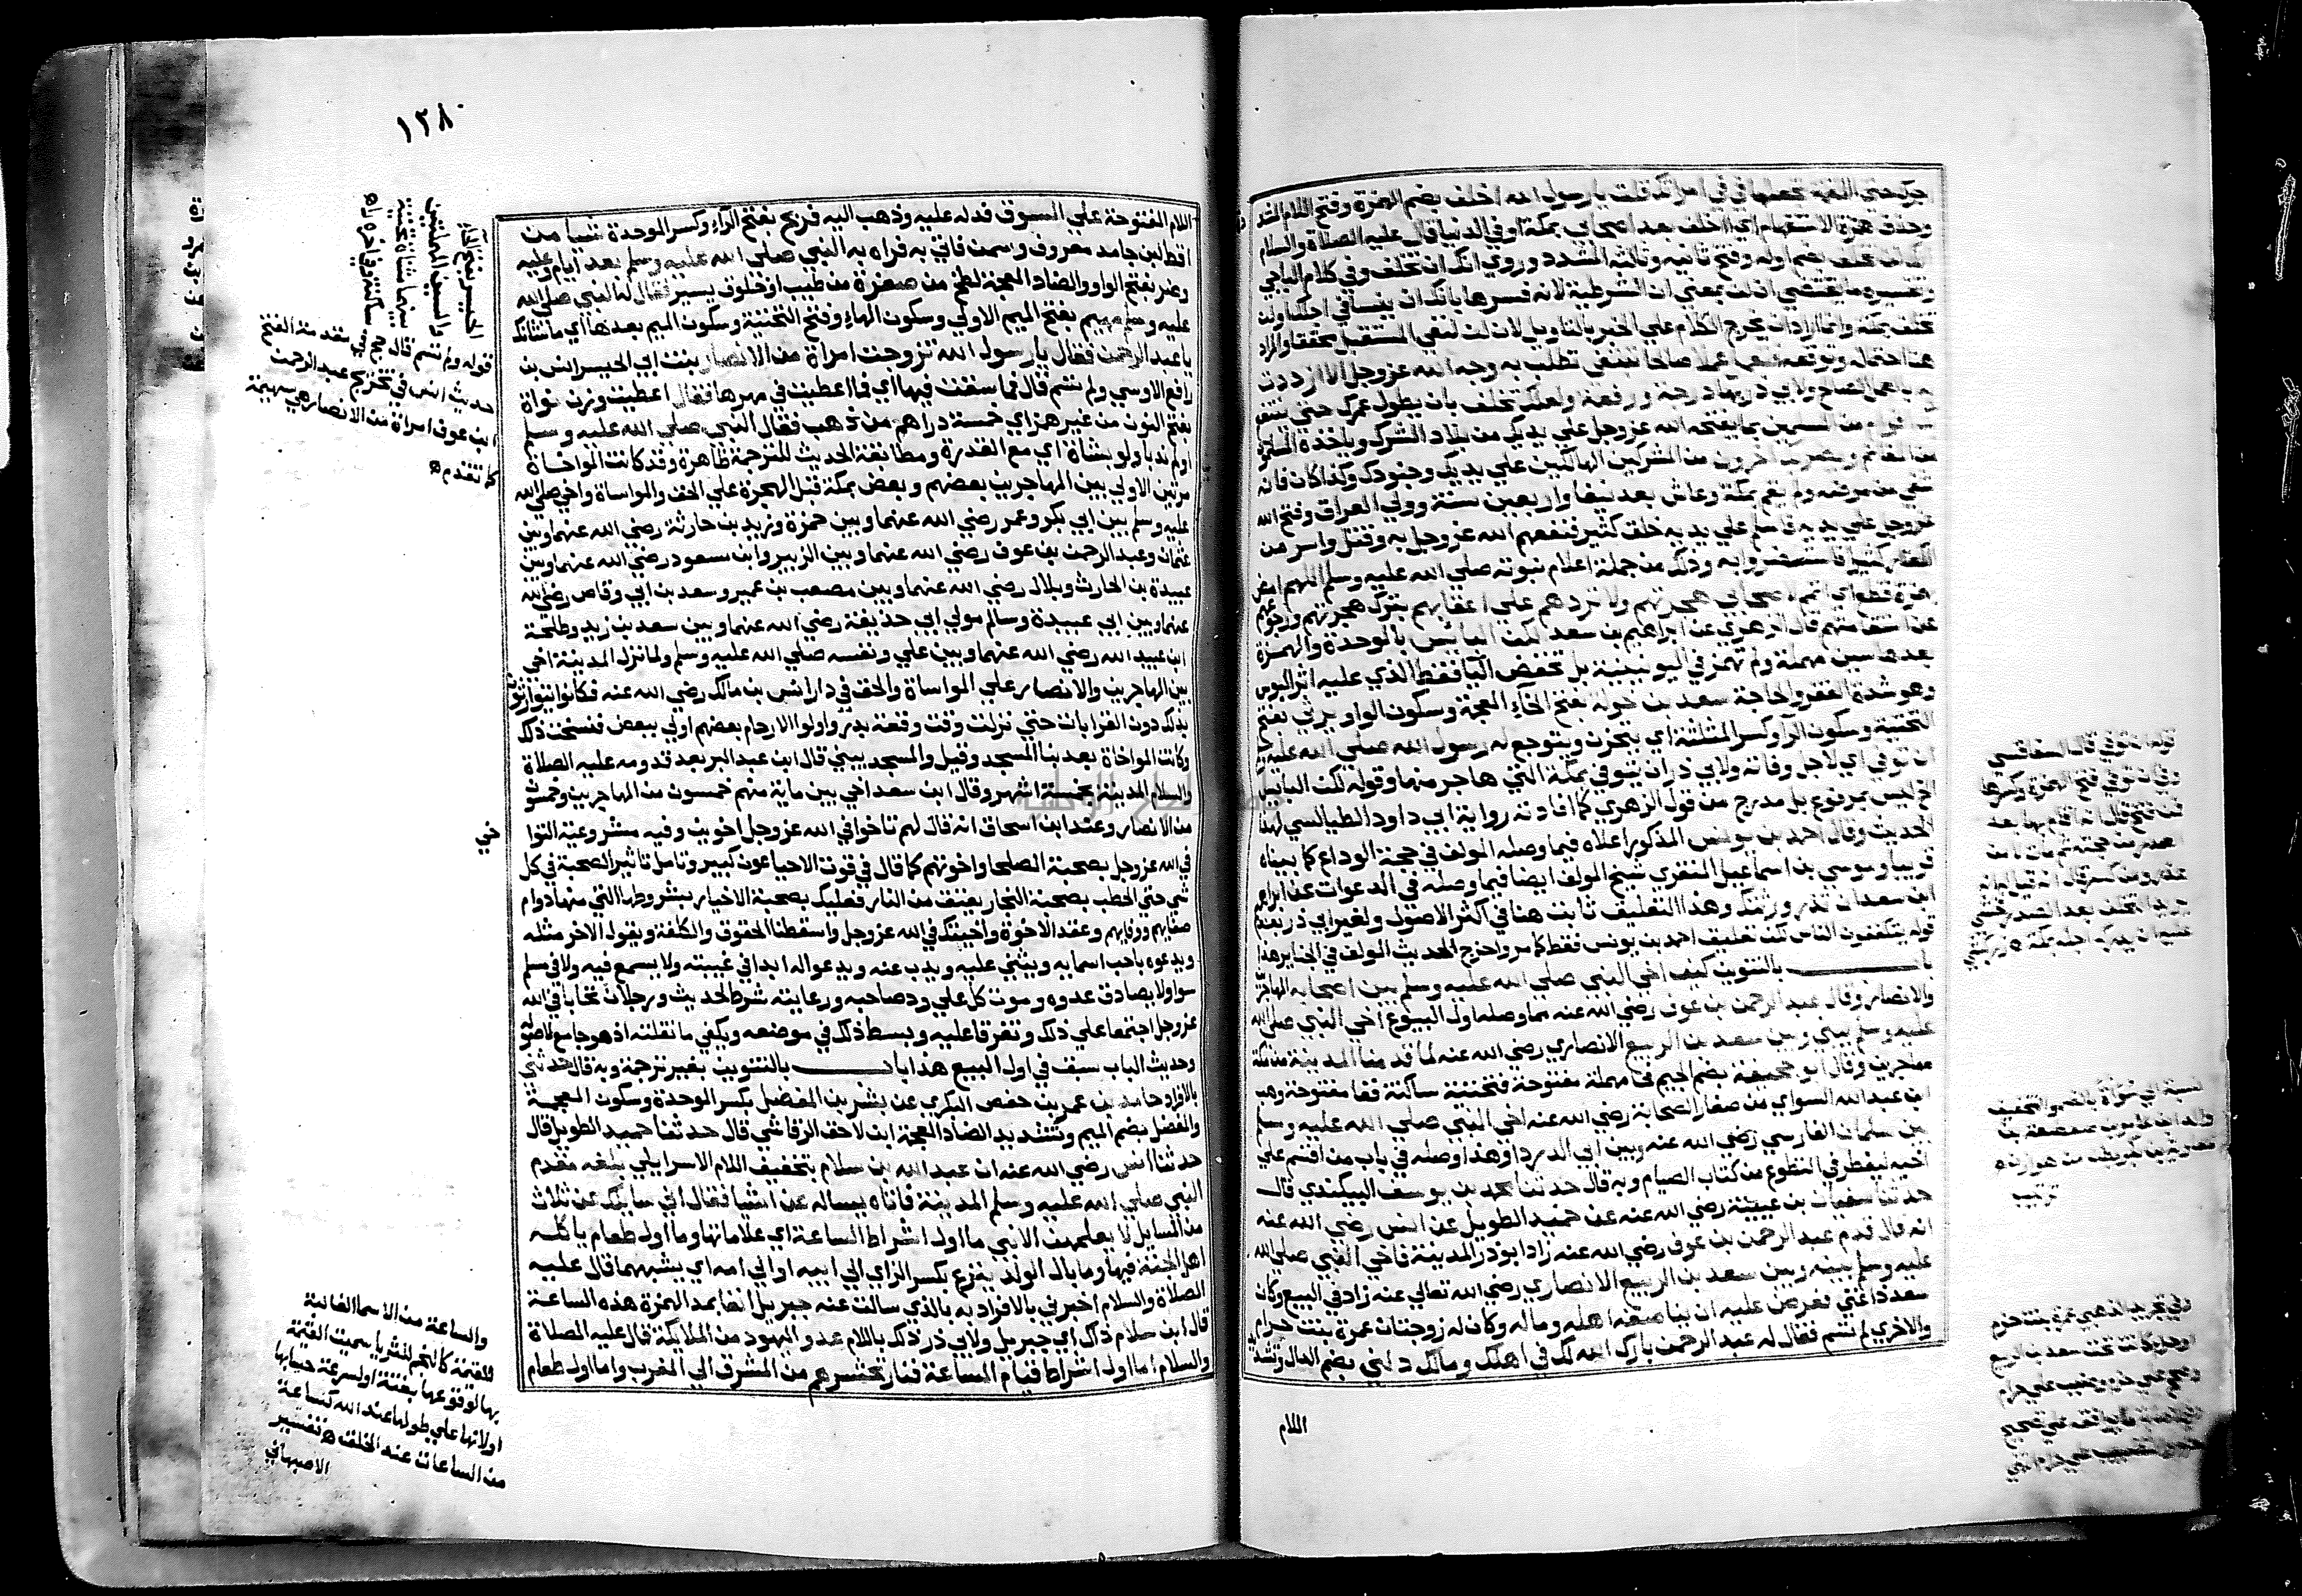 وحذف همزة الاستفهام اي ااخلف بعد اصحابي بمكة او في الدنيا قال عليه الصلاة والسلام
تخلف بضم اوله وفتح ثانيه وثالثه المشدد وروي انك ان تخلف وفي كلام الباجي
وغيره ما يقتضي ان لن بمعني ان الشرطية لانه فسرها بانك ان ينسا في اجلك ولن
تخلف بمكة وانما اراد ان يخرج الكلام علي الخبر بالتاويل لان لن لنفي المستقبل محققا والمراد
هنا احتماله وتوقعه فتعمل عملا صالحا تبتغي تطلب به وجه الله عز وجل الا ازددت
به بالعمل الصالح ولابي ذر بها درجة ورفعة ولعلك تخلف بان يطول عمرك حتي ينتفع
بك اقوام من المسلمين بما يفتحه الله عز وجل علي يديك من بلاد الشرك وياخذه المسلمون
من الغنائم ويضر بك اخرون من المشركين الهالكين علي يديك وجنودك وكذا كان فانه
شفي من مرضه ولم يقم بمكة وعاش بعد نيفا واربعين سنة وولي العراق وفتح الله
عز وجل علي يديه فاسلم علي يديه خلق كثير فنفعهم الله عز وجل به وقتل واسر من
الكفار كثيرا فاستضروا به وذلك من جملة اعلام نبوته صلي الله عليه وسلم اللهم امض
بهمزة قطع اي اتمم لاصحابي هجرتهم ولا تردهم علي اعقابهم بترك هجرتهم ورجوعهم
عن استقامتهم قال الزهري عن ابراهيم بن سعد لكن البائس بالموحدة والهمزة
بعدها سين مهملة ولم تهمز في اليونينية بل تخفض اليا فقط الذي عليه اثر البوس
وهو شدة الفقر والحاجة سعد بن خولة بفتح الخاء المعجمة وسكون الواو يرثي بفتح
التحتية وسكون الرا وكسر المثلثة اي يتحزن ويتوجع له رسول الله صلي الله عليه
ان توفي اي لاجل وفاته ولابي ذر ان يتوفي بمكة التي هاجر منها وقوله لكن البائس
الخ ليس بمرفوع بل مدرج من قول الزهري كما افادته رواية ابي داود الطيالسي لهذا
الحديث وقال احمد بن يونس المذكور اعلاه فيما وصله المولف في حجة الوداع كما بيناه
قريبا وموسي بن اسماعيل المنقري شيخ المولف ايضا فيما وصله في الدعوات عن ابراهيم
ابن سعد ان تذر ورثتك وهذا التعليق ثابت هنا في اكثر الاصول ولغير ابي ذر بعد
قوله يتكففون الناس لكن تعليق احمد بن يونس فقط كما مر واخرج الحديث المولف في الجنايز هذا
باب بالتنوين كيف اخي النبي صلي الله عليه وسلم بين اصحابه المهاجرين
والانصار وقال عبد الرحمن بن عوف رضي الله عنه مما وصله اول البيوع اخي النبي صلي الله
عليه وسلم بيني وبين سعد بن الربيع الانصاري رضي الله عنه لما قدمنا المدينة من مكة
مهاجرين وقال ابو جحيفة بضم الجيم فحا مهملة مفتوحة فتحتية ساكنة ففا مفتوحة وهب
ابن عبد الله السواي من صغار الصحابة رضي الله عنه اخي النبي صلي الله عليه وسلم
بين سلمان الفارسي رضي الله عنه وبين ابي الدرداو هذا وصله في باب من اقسم علي
اخيه ليفطر في التطوع من كتاب الصيام وبه قال حدثنا محمد بن يوسف البيكندي قال
حدثنا سفيان بن عيينة رضي الله عنه عن حميد الطويل عن انس رضي الله عنه
انه قال قدم عبد الرحمن بن عوف رضي الله عنه زاد ابو ذر المدينة فاخي النبي صلي الله
عليه وسلم بينه وبين سعد بن الربيع الانصاري رضي الله تعالي عنه زاد في البيع وكان
سعد ذا غني فعرض عليه ان يناصفه اهله وماله وكان له زوجتان عمرة بنت حرام
والاخري لم تسم فقال له عبد الرحمن بارك الله لك في اهلك ومالك دلني بضم الدال وتشديد
اللام
١٢٨
اللام المفتوحة علي السوق فدله عليه وذهب اليه فربح بفتح الراء وكسر الموحدة شيا من
اقط لبن جامد معروف وسمن فاتي به فراه به النبي صلي الله عليه وسلم بعد ايام وعليه
وضر بفتح الواو والضاد المعجمة لطخ من صفرة من طيب او خلوق يسير فقال له النبي صلي الله
عليه وسلم مهيم بفتح الميم الاولي وسكون الهاء وفتح التحتية وسكون الميم بعدها اي ما شانك
يا عبد الرحمن فقال يا رسول الله تزوجت امراة من الانصار بنت ابي الحيسر انس بن
رافع الاوسي ولم تسم قال فما سقت فيها اي فما اعطيت في مهرها فقال اعطيت وزن نواة
بفتح النون من غير همز اي خمسة دراهم من ذهب فقال النبي صلي الله عليه وسلم
اولم ندبا ولو بشاة اي مع القدرة ومطابقة الحديث للترجمة ظاهرة وقد كانت المواخاة
مرتين الاولي بين المهاجرين بعضهم وبعض بمكة قبل الهجرة علي الحق والمواساة واخي صلي الله
عليه وسلم بين ابي بكر وعمر رضي الله عنهما وبين حمزة وزيد بن حارثة رضي الله عنهما وبين
عثمان وعبد الرحمن بن عوف رضي الله عنهما وبين الزبير وابن مسعود رضي الله عنهما وبين
عبيدة بن الحارث وبلال رضي الله عنهما وبين مصعب بن عمير وسعد بن ابي وقاص رضي الله
عنهما وبين ابي عبيدة وسالم مولي ابي حذيفة رضي الله عنهما وبين سعد بن زيد وطلحة
ابن عبيد الله رضي الله عنهما وبين علي ونفسه صلي الله عليه وسلم ولما نزل المدينة اخي
بين المهاجرين والانصار علي المواساة والحق في دار انس بن مالك رضي الله عنه فكانوا يتوارثون
بذلك دون القرابات حتي نزلت وقت وقعة بدر واولوا الارحام بعضهم اولي ببعض فنسخت ذلك
وكانت المواخاة بعد بنا المسجد وقيل والمسجد يبني قال ابن عبد البر بعد قدومه عليه الصلاة
والسلام المدينة بخمسة اشهر وقال ابن سعد اخي بين ماية منهم خمسون من المهاجرين وخمسون
من الانصار وعند ابن اسحاق انه قال لهم تاخوا في الله عز وجل اخوين وفيه مشروعية التوا
خي
في الله عز وجل بصحبة الصلحا واخوتهم كما قال في قوت الاحيا عون كبير وتامل تاثير الصحبة في كل
شي حتي الحطب بصحبة النجار يعتق من النار فعليك بصحبة الاخيار بشروطها التي منها دوام
صفايهم ووفايهم وعقد الاخوة واخيتك في الله عز وجل واسقطنا الحقوق والكلفة ويقول الاخر مثله
ويدعوه باحب اسمايه ويثني عليه ويذب عنه ويدعو اله ابدا في غيبته ولا يسمع فيه ولا في مسلم
سوا ولا يصادق عدوه وموت كل علي ود صاحبه ورعايته شرط الحديث ورجلان تحابا في الله
عز وجل اجتمعا علي ذلك وتفرقا عليه وبسط ذلك في موضعه ويكفي ما نقلته اذ هو جامع لاصوله
وحديث الباب سبق في اول البيع هذا باب بالتنوين بغير ترجمة وبه قال حدثني
بالافراد حامد بن عمر بن حفص البكري عن بشر بن المفضل بكسر الموحدة وسكون المعجمة
والمفضل بضم الميم وتشديد الضاد المعجمة ابن لاحق الرقاشي قال حدثنا حميد الطويل قال
حدثنا انس رضي الله عنه ان عبد الله بن سلام بتخفيف اللام الاسرايلي بلغه مقدم
النبي صلي الله عليه وسلم المدينة فاتاه يساله عن اشيا فقال اني سايلك عن ثلاث
من المسايل لا يعلمهن الا نبي ما اول اشراط الساعة اي علاماتها وما اول طعام ياكله
اهل الجنة فيها وما بال الولد ينزع بكسر الزاي الي ابيه او الي امه اي يشبههما قال عليه
الصلاة والسلام اخبرني بالافراد به بالذي سالت عنه جبريل انفا بمد الهمزة هذه الساعة
قال ابن سلام ذاك اي جبريل ولابي ذر ذلك باللام عدو اليهود من الملايكة قال عليه الصلاة
والسلام اما اول اشراط قيام الساعة فنار تحشرهم من المشرق الي المغرب واما اول طعام
الحيسر بفتح الحاء
والسين المهملتين
بينهما مثناة تحتية
ساكنة وفي اخره راء
قوله ولم تسم قال
حديث انس في تزويج عبد الرحمن
ابن عوف امراة من الانصار هي سهيمة
كما تقدم
والساعة من الاسما الغالبة
للقيمة كالنجم للثريا سميت القيمة
بها لوقوعها بغتة او لسرعة حسابها
او لانها علي طولها عند الله كساعة
من الساعات عند الخلق تفسير
الاصبهاني